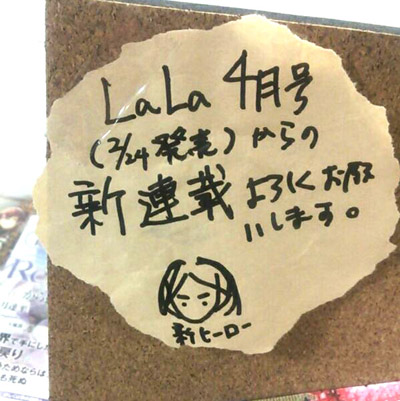 LaLa 4月号
(2/24発売)からの
新連載よろしくお願
いします。
新ヒーロー
Re
界で手にした
戻り
ためならば
も死ぬ